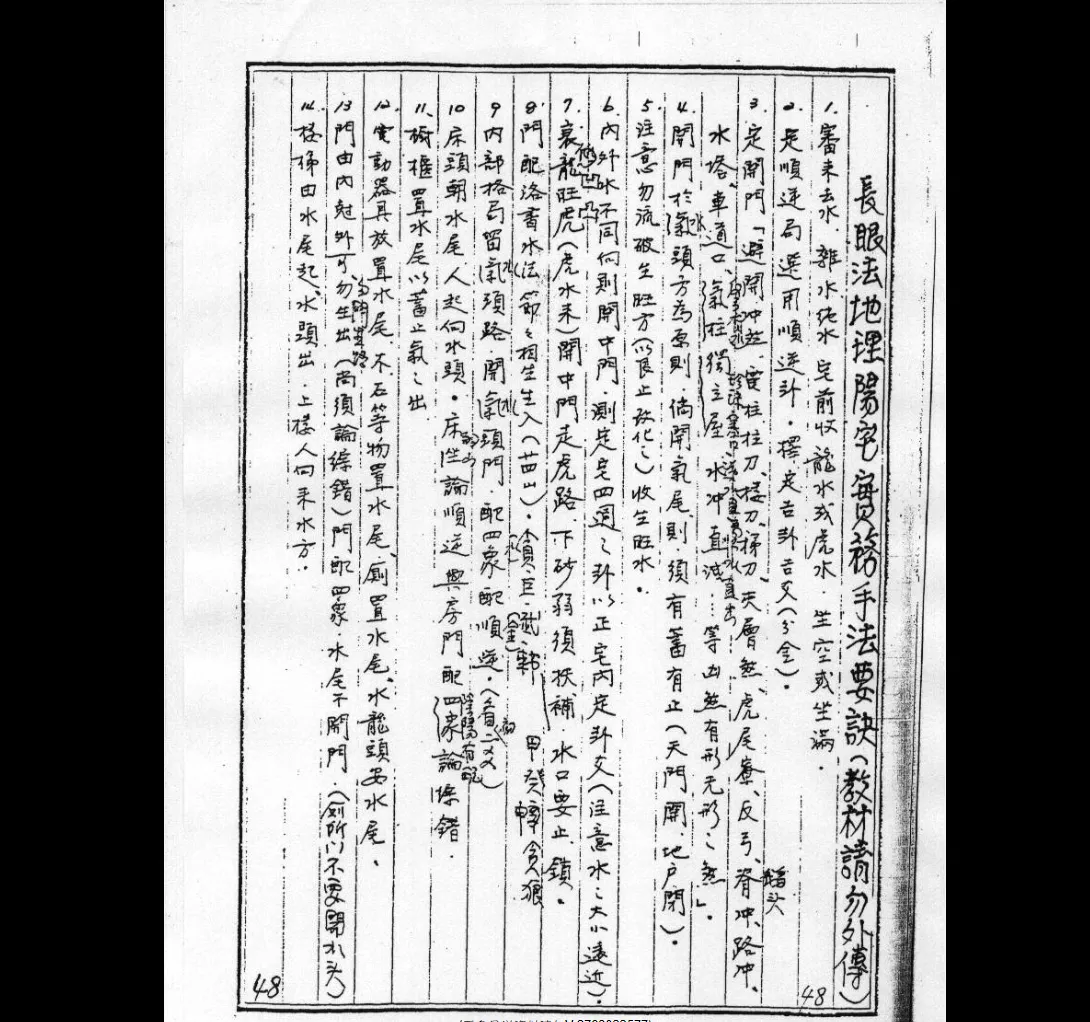 長眼法地理陽宅實務手法要訣(教材請勿外傳)
1. 審來去水、雜水純水 宅前收龍水或虎水.坐空或坐滿.
2. 是順逆局選用順逆卦.擇定吉卦吉爻(分金).
3. 定開門「避開冲煞、電柱柱刀、楼刀、梯刀、夾層煞、虎尾寮、反弓、脊冲、路冲、
水塔、車道口、氣柱獨立屋 水冲直減…等凶煞有形无形之煞」.
4. 開門於氣頭方為原則.倘開氣尾則須有蓄有止(天門開.地戶閉).
5. 注意勿流破生旺方(以艮止改化之)收生旺水.
6. 內外水不同向則開中門.測定宅四週之卦以正宅內定卦爻(注意水之大小遠近).
7. 衰龍旺虎(虎水来)開中門走虎路.下砂弱須扶補.水口要止鎖.
8. 門配洛書水法節々相生生入(廿四山).貪.巨.武.輔 甲癸轉貪狼
9 內部格局留氣頭路.開氣頭門.配四象配順逆.
10 床頭朝水尾人起向水頭.床坐論順逆與房門配四象論綜錯.
11. 橱櫃置水尾以蓄止氣之出
12. 電動器具放置水尾.木石等物置水尾、廁置水尾、水龍頭安水尾.
13. 門由內尅外可勿生出(尚須論綜錯)門配四象.水尾不開門.(廁所以不要開水头)
14. 楼梯由水尾起、水頭出.上楼人向来水方.
48
48